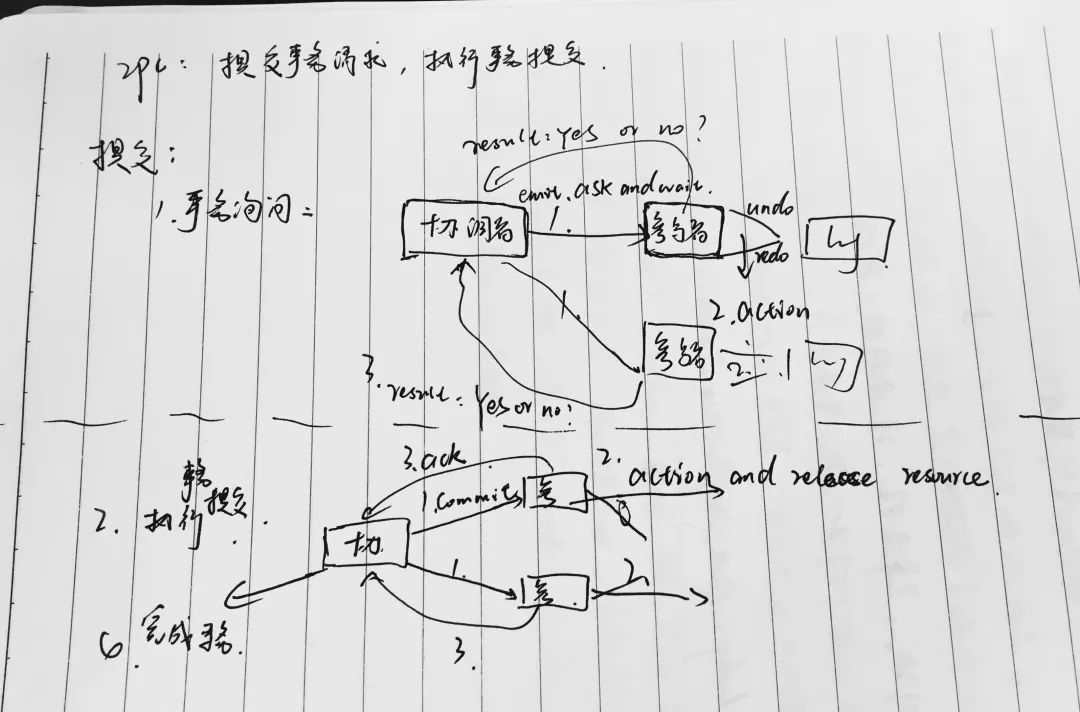 2pc: 提交事务请求，执行事务提交.
提交:
1. 事务询问:
result: Yes or no?
emit. ask and wait.
1.
协调者
参与者
undo
redo
log
1.
2. action
参与者
2.
log
3. result: Yes or no?
2. 执行事务提交.
3. ack
1. commit
协
参
2. action and release resource.
1.
参
2.
3.
6. 完成事务.